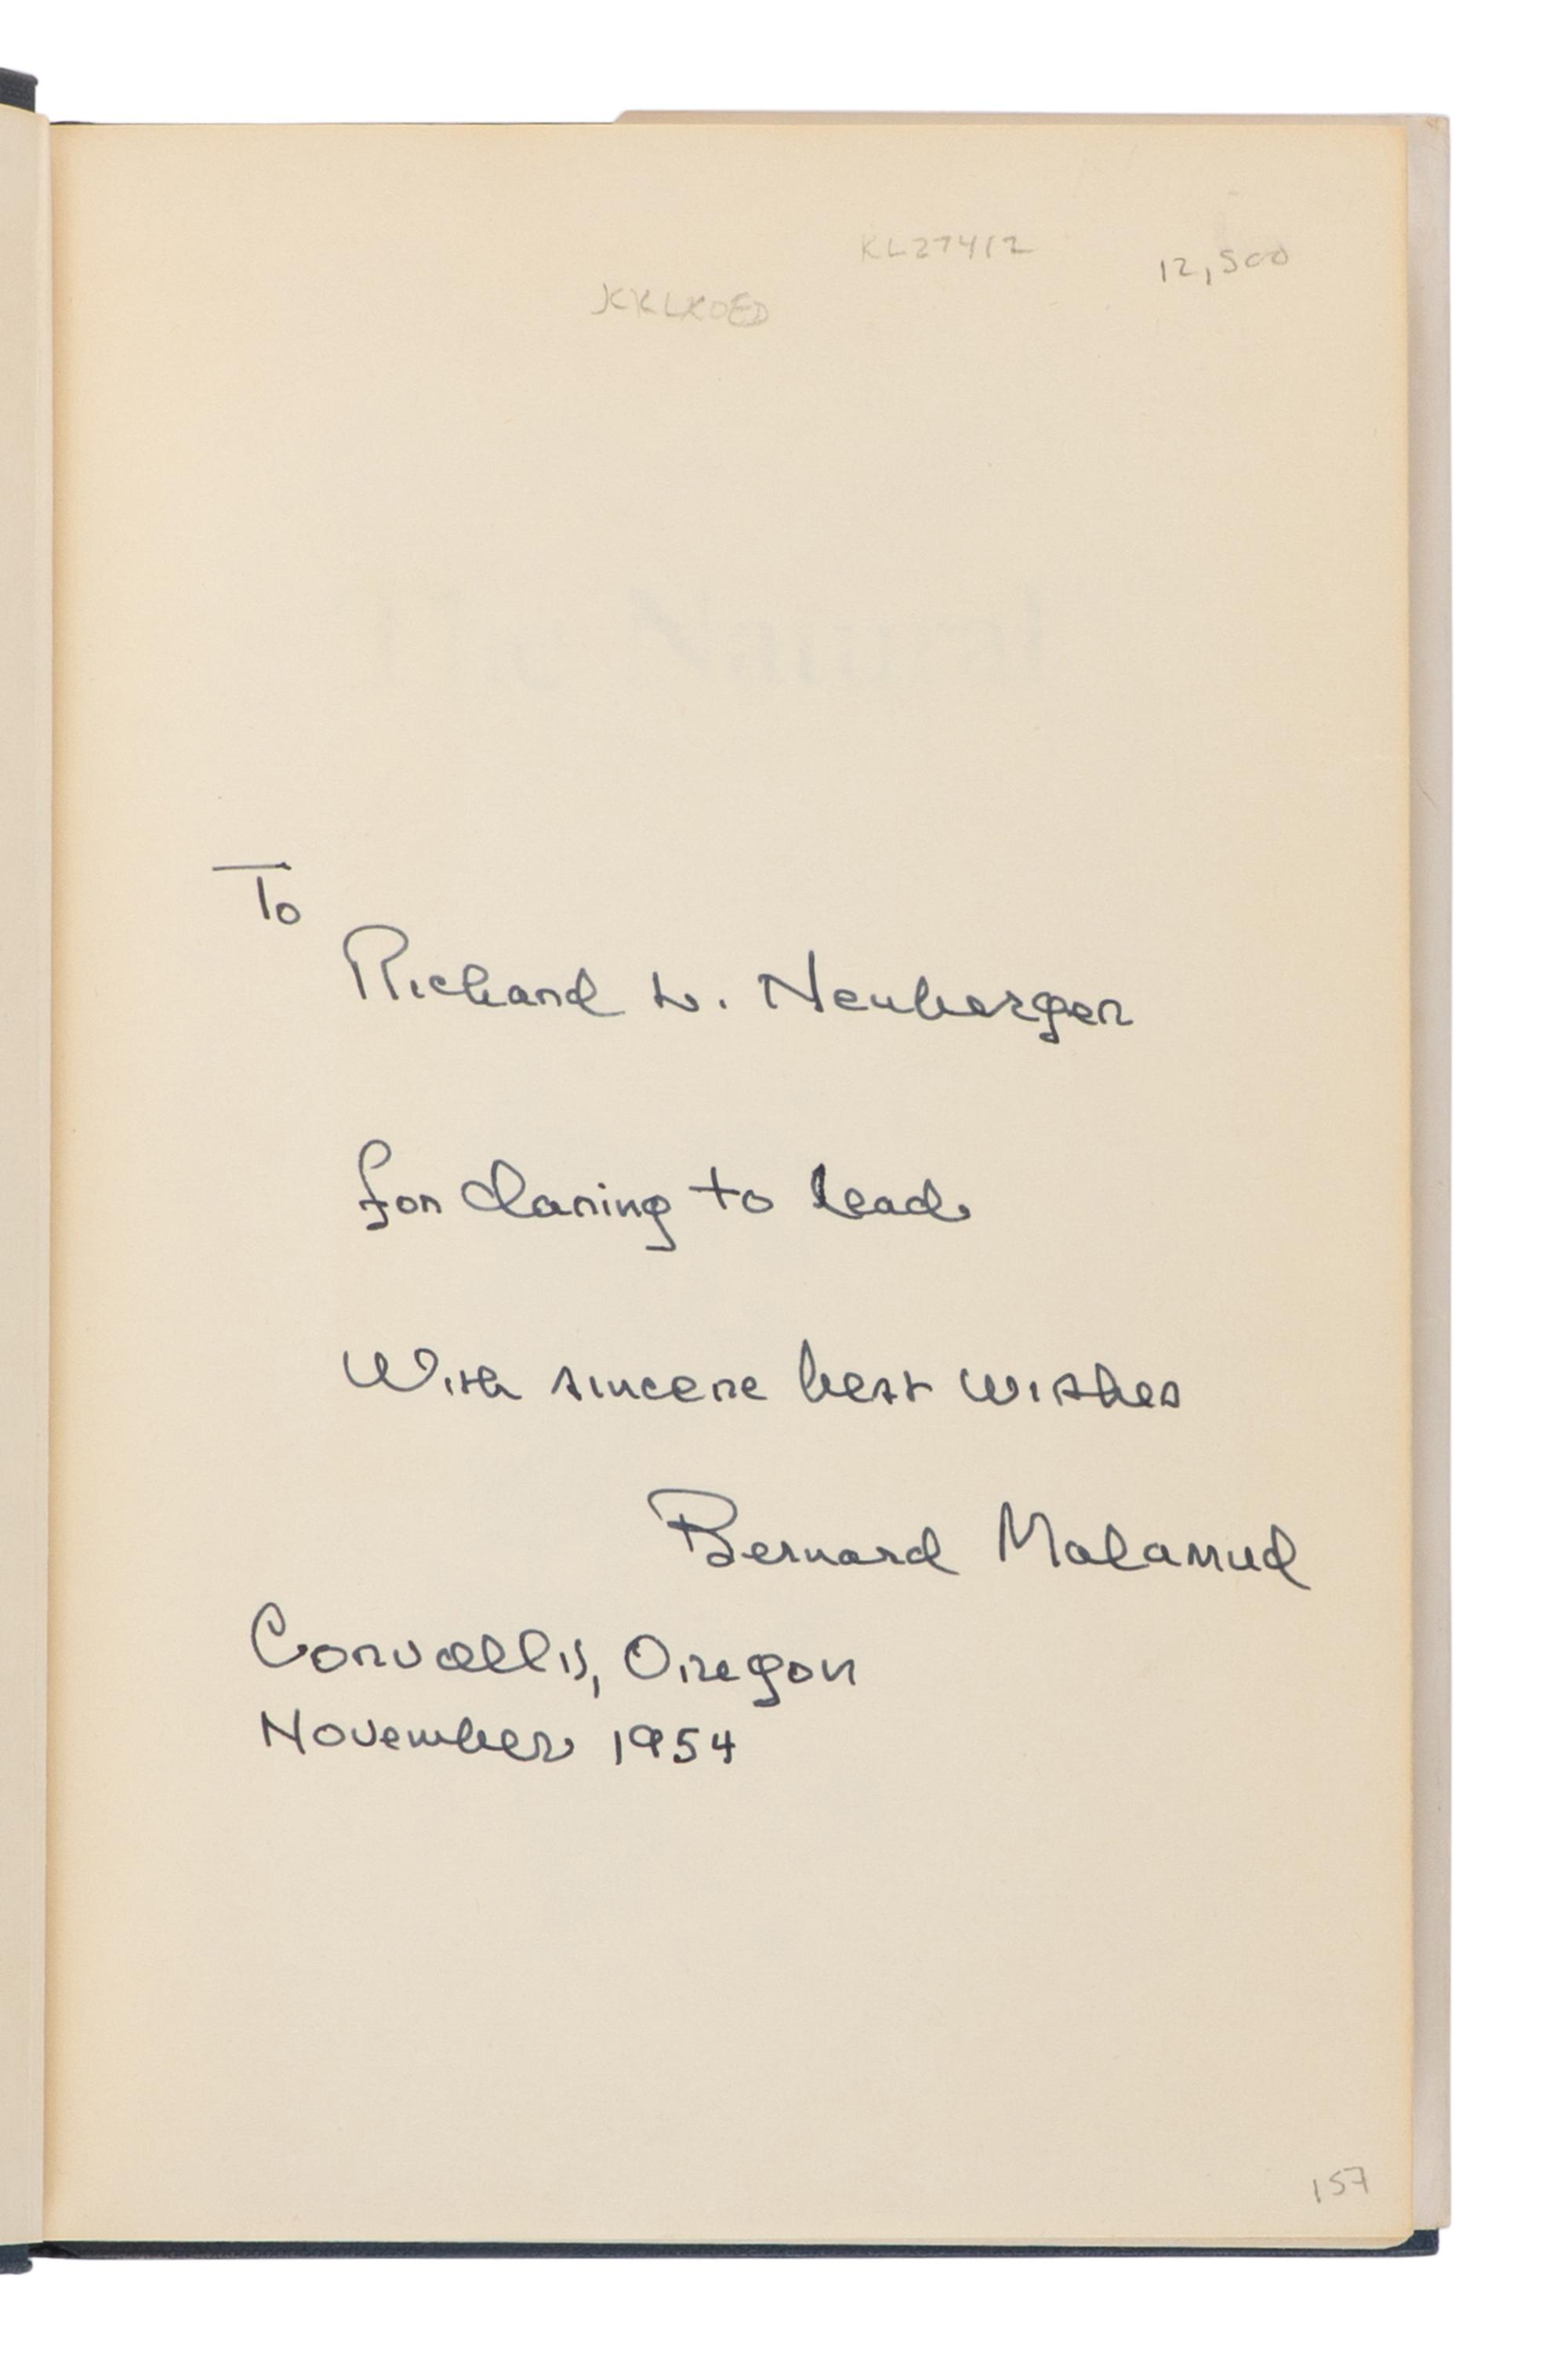 KL27412
12,500
KKLKOED
The Natural
To
Richard L. Neuberger
for daring to lead
With sincere best wishes
Bernard Malamud
Corvallis, Oregon
November 1954
157